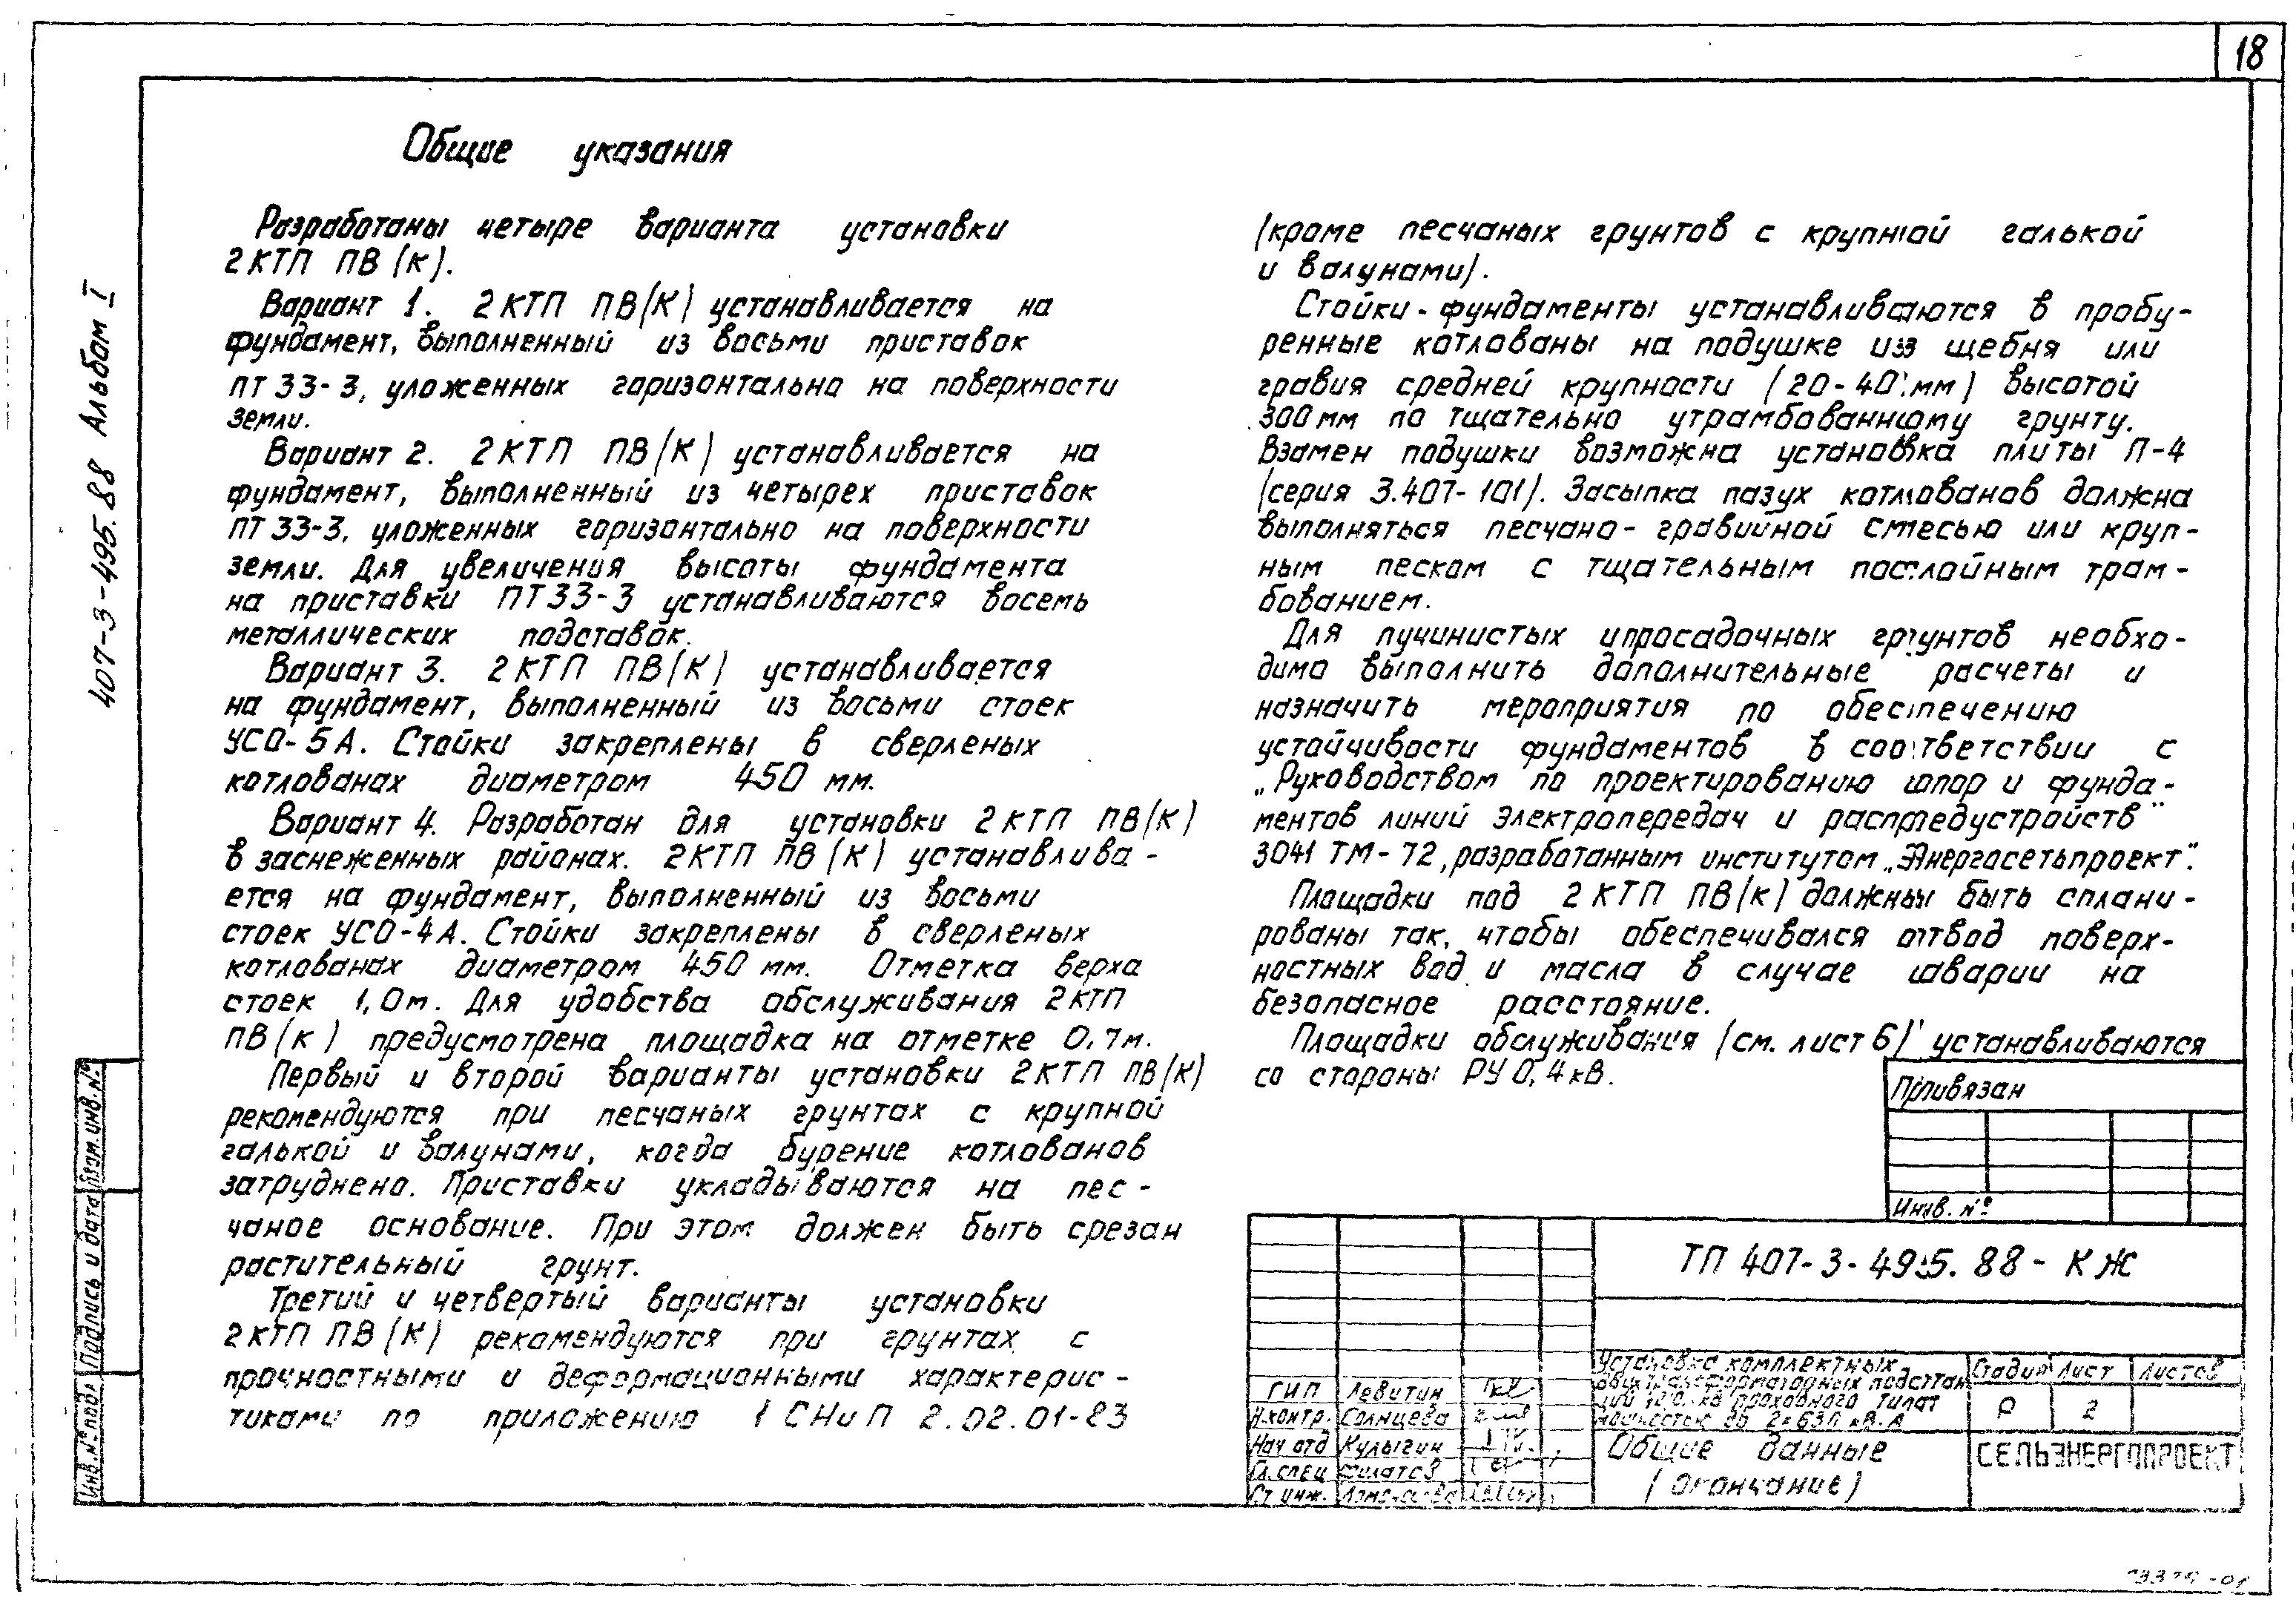 18
Общие указания
Разработаны четыре варианта установки
2КТП ПВ(К).
Вариант 1. 2КТП ПВ(К) устанавливается на
фундамент, выполненный из восьми приставок
ПТ 33-3, уложенных горизонтально на поверхности
земли.
Вариант 2. 2КТП ПВ(К) устанавливается на
фундамент, выполненный из четырех приставок
ПТ 33-3, уложенных горизонтально на поверхности
земли. Для увеличения высоты фундамента
на приставки ПТ33-3 устанавливаются восемь
металлических подставок.
Вариант 3. 2КТП ПВ(К) устанавливается
на фундамент, выполненный из восьми стоек
УСО-5А. Стойки закреплены в сверленых
котлованах диаметром 450 мм.
Вариант 4. Разработан для установки 2КТП ПВ(К)
в заснеженных районах. 2КТП ПВ(К) устанавлива-
ется на фундамент, выполненный из восьми
стоек УСО-4А. Стойки закреплены в сверленых
котлованах диаметром 450 мм. Отметка верха
стоек 1,0м. Для удобства обслуживания 2КТП
ПВ(К) предусмотрена площадка на отметке 0,7м.
Первый и второй варианты установки 2КТП ПВ(К)
рекомендуются при песчаных грунтах с крупной
галькой и валунами, когда бурение котлованов
затруднено. Приставки укладываются на пес-
чаное основание. При этом должен быть срезан
растительный грунт.
Третий и четвертый варианты установки
2КТП ПВ(К) рекомендуются при грунтах с
прочностными и деформационными характерис-
тиками по приложению 1 СНиП 2.02.01-83
(кроме песчаных грунтов с крупной галькой
и валунами).
Стойки-фундаменты устанавливаются в пробу-
ренные котлованы на подушке из щебня или
гравия средней крупности (20-40 мм) высотой
300мм по тщательно утрамбованному грунту.
Взамен подушки возможна установка плиты П-4
(серия 3.407-101). Засыпка пазух котлованов должна
выполняться песчано-гравийной смесью или круп-
ным песком с тщательным послойным трам-
бованием.
Для пучинистых и просадочных грунтов необхо-
димо выполнить дополнительные расчеты и
назначить мероприятия по обеспечению
устойчивости фундаментов в соответствии с
„Руководством по проектированию опор и фунда-
ментов линий электропередач и распредустройств"
3041 ТМ-72, разработанным институтом „Энергосетьпроект".
Площадки под 2КТП ПВ(К) должны быть сплани-
рованы так, чтобы обеспечивался отвод поверх-
ностных вод и масла в случае аварии на
безопасное расстояние.
Площадки обслуживания (см. лист 6) устанавливаются
со стороны РУ 0,4кВ.
407-3-495.88 Альбом I
Взам. инв. №
Подпись и дата
Инв. № подл
Привязан
Инв. №
ТП 407-3-495.88-КЖ
Установка комплектных
двухтрансформаторных подстан
проходного типа
мощностью до 2×630 кВ.А
Стадия Лист Листов
Р 2
ГИП Левитин
Н.контр. Солнцева
Нач отд Кулыгин
Гл.спец Филатов
Ст инж.
Общие данные
(окончание)
СЕЛЬЭНЕРГОПРОЕКТ